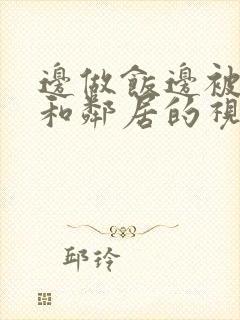 邊做飯邊被
和鄰居的視
邱玲